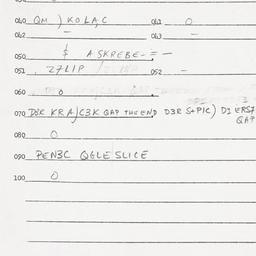 040 QM ) KOLAC 041 0
042 – 043 –
050 $ ASKREBE-=-
051 . Z7LIP 052 –
060 0
070 D8K KRA)C3K QAP THE END D3R S+PIC) DI ERS7
QAP
080 0
090 PEN3C Q6LE SLICE
100 0